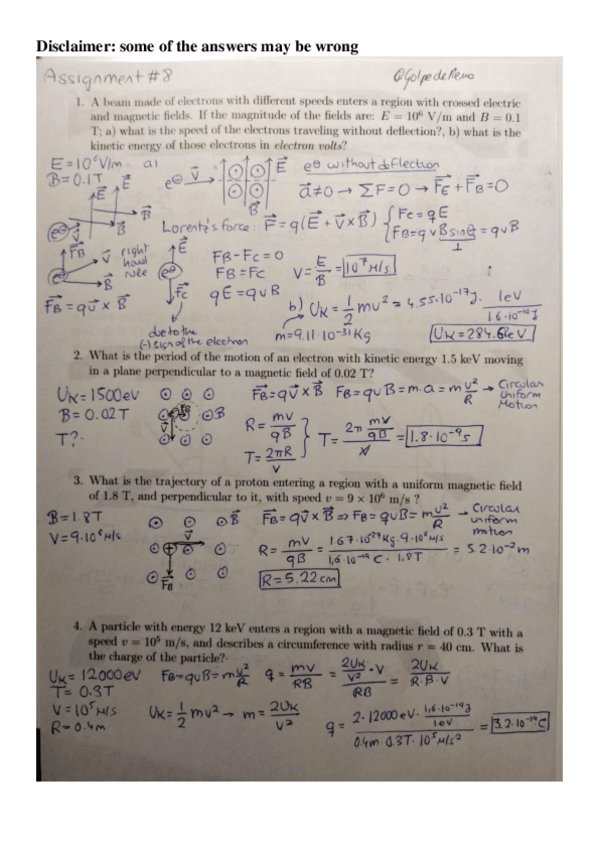 Disclaimer: some of the answers may be wrong
Assignment #8
@GolpedeRemo
1. A beam made of electrons with different speeds enters a region with crossed electric
and magnetic fields. If the magnitude of the fields are: E = 10⁶ V/m and B = 0.1
T; a) what is the speed of the electrons traveling without deflection?, b) what is the
kinetic energy of those electrons in electron volts?
E = 10⁶ V/m a)
B = 0.1T
e⊖ V⃗ E⃗ B⃗
e⊖ without deflection
a⃗≠0 → ΣF=0 → F⃗E + F⃗B = 0
Lorentz's force: F⃗ = q(E⃗ + V⃗ x B⃗) { Fc = qE
FB = qVB sinθ = qvB
right
hand
rule
F⃗B = qV⃗ x B⃗
FB - Fc = 0
FB = Fc
qE = qvB
V = E/B = 10⁷ m/s
due to the
(-) sign of the electron
b) UK = 1/2 mv² = 4.55·10⁻¹⁷ J · 1eV / 1.6·10⁻¹⁹ J
m = 9.11·10⁻³¹ Kg
UK = 284.6 eV
2. What is the period of the motion of an electron with kinetic energy 1.5 keV moving
in a plane perpendicular to a magnetic field of 0.02 T?
UK = 1500 eV
B = 0.02 T
T?
F⃗B = qV⃗ x B⃗ FB = qvB = m·a = m v²/R → Circular
Uniform
Motion
R = mv/qB
T = 2πR/V
T = 2π mv/qB / v = 1.8·10⁻⁹ s
3. What is the trajectory of a proton entering a region with a uniform magnetic field
of 1.8 T, and perpendicular to it, with speed v = 9 × 10⁶ m/s ?
B = 1.8 T
V = 9·10⁶ m/s
F⃗B = qV⃗ x B⃗ ⇒ FB = qvB = m v²/R → Circular
uniform
motion
R = mv/qB = 1.67·10⁻²⁷ Kg · 9·10⁶ m/s / 1,6·10⁻¹⁹ C · 1,8T = 5.2·10⁻² m
R = 5.22 cm
4. A particle with energy 12 keV enters a region with a magnetic field of 0.3 T with a
speed v = 10⁵ m/s, and describes a circumference with radius r = 40 cm. What is
the charge of the particle?
UK = 12000 eV
T = 0.3T
V = 10⁵ m/s
R = 0.4m
FB = qvB = m v²/R q = mv/RB = 2UK/v² · v / RB = 2UK/R·B·V
UK = 1/2 mv² → m = 2UK/v²
q = 2·12000 eV · 1,6·10⁻¹⁹ J/1eV / 0.4m · 0.3T · 10⁵ m/s² = 3.2·10⁻¹⁹ C